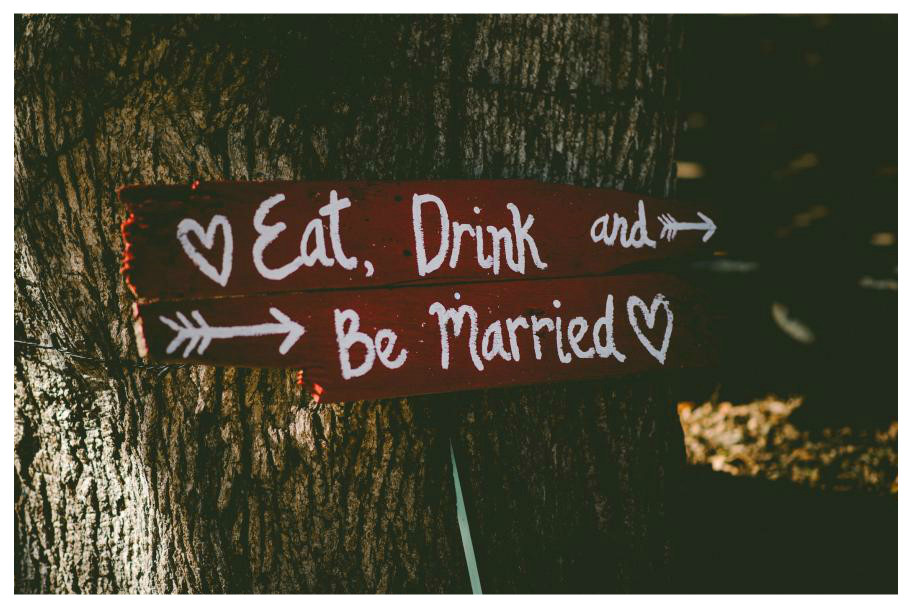 Eat, Drink and
Be Married